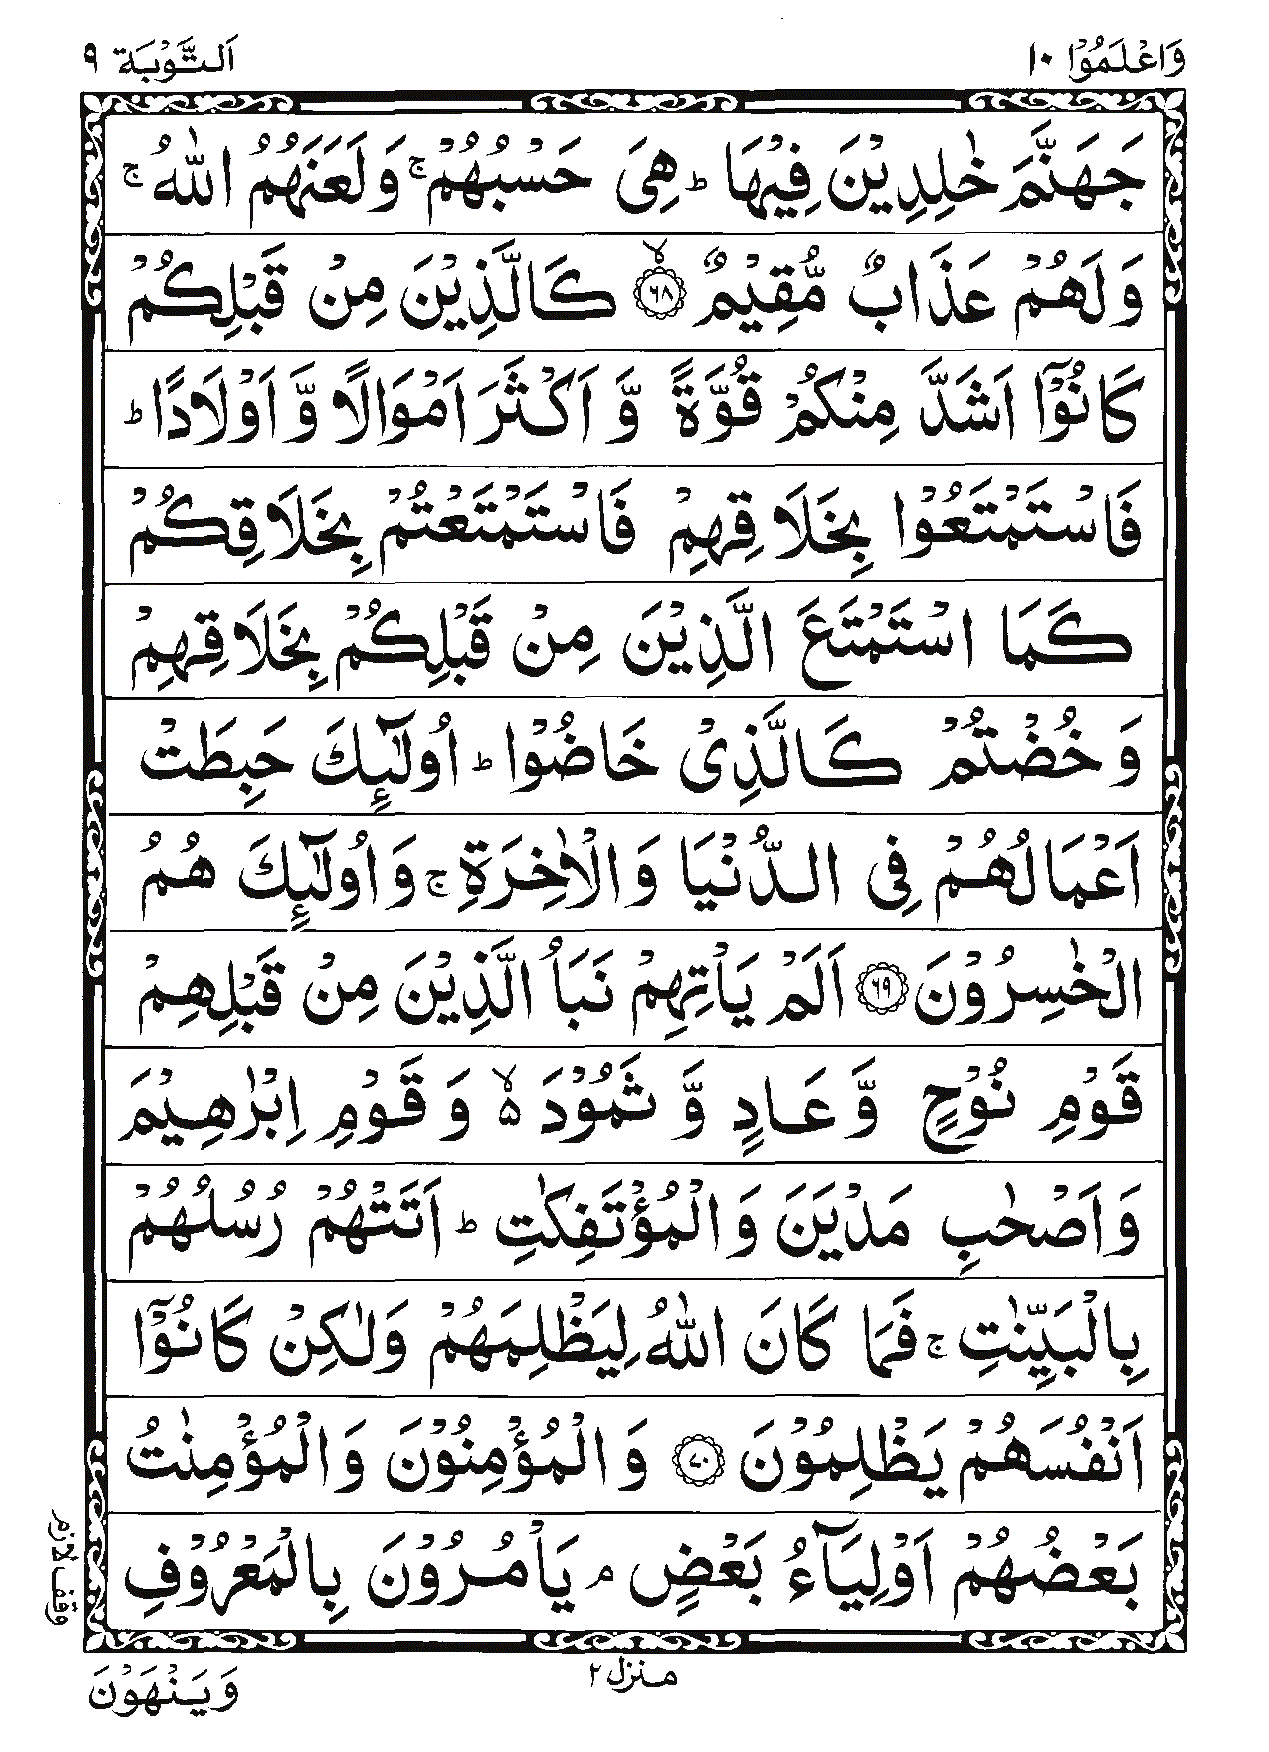 وَاعْلَمُوْٓا ١٠
اَلتَّوْبَة ٩
جَهَنَّمَ خٰلِدِيْنَ فِيْهَا ؕ هِىَ حَسْبُهُمْ ۚ وَلَعَنَهُمُ اللّٰهُ ۚ
وَلَهُمْ عَذَابٌ مُّقِيْمٌ ۙ‏﴿۶۸﴾ كَالَّذِيْنَ مِنْ قَبْلِكُمْ
كَانُوْۤا اَشَدَّ مِنْكُمْ قُوَّةً وَّ اَكْثَرَ اَمْوَالًا وَّ اَوْلَادًا ؕ
فَاسْتَمْتَعُوْا بِخَلَاقِهِمْ فَاسْتَمْتَعْتُمْ بِخَلَاقِكُمْ
كَمَا اسْتَمْتَعَ الَّذِيْنَ مِنْ قَبْلِكُمْ بِخَلَاقِهِمْ
وَ خُضْتُمْ كَالَّذِىْ خَاضُوْا ؕ اُولٰٓئِكَ حَبِطَتْ
اَعْمَالُهُمْ فِى الدُّنْيَا وَالْاٰخِرَةِ ۚ وَاُولٰٓئِكَ هُمُ
الْخٰسِرُوْنَ ﴿۶۹﴾ اَلَمْ يَاْتِهِمْ نَبَاُ الَّذِيْنَ مِنْ قَبْلِهِمْ
قَوْمِ نُوْحٍ وَّ عَادٍ وَّ ثَمُوْدَ ۵ۙ وَ قَوْمِ اِبْرٰهِيْمَ
وَاَصْحٰبِ مَدْيَنَ وَالْمُؤْتَفِكٰتِ ؕ اَتَتْهُمْ رُسُلُهُمْ
بِالْبَيِّنٰتِ ۚ فَمَا كَانَ اللّٰهُ لِيَظْلِمَهُمْ وَلٰكِنْ كَانُوْۤا
اَنْفُسَهُمْ يَظْلِمُوْنَ ﴿۷۰﴾ وَالْمُؤْمِنُوْنَ وَالْمُؤْمِنٰتُ
بَعْضُهُمْ اَوْلِيَآءُ بَعْضٍ ۘ يَاْمُرُوْنَ بِالْمَعْرُوْفِ
وقف لازم
منزل ٢
وَيَنْهَوْنَ